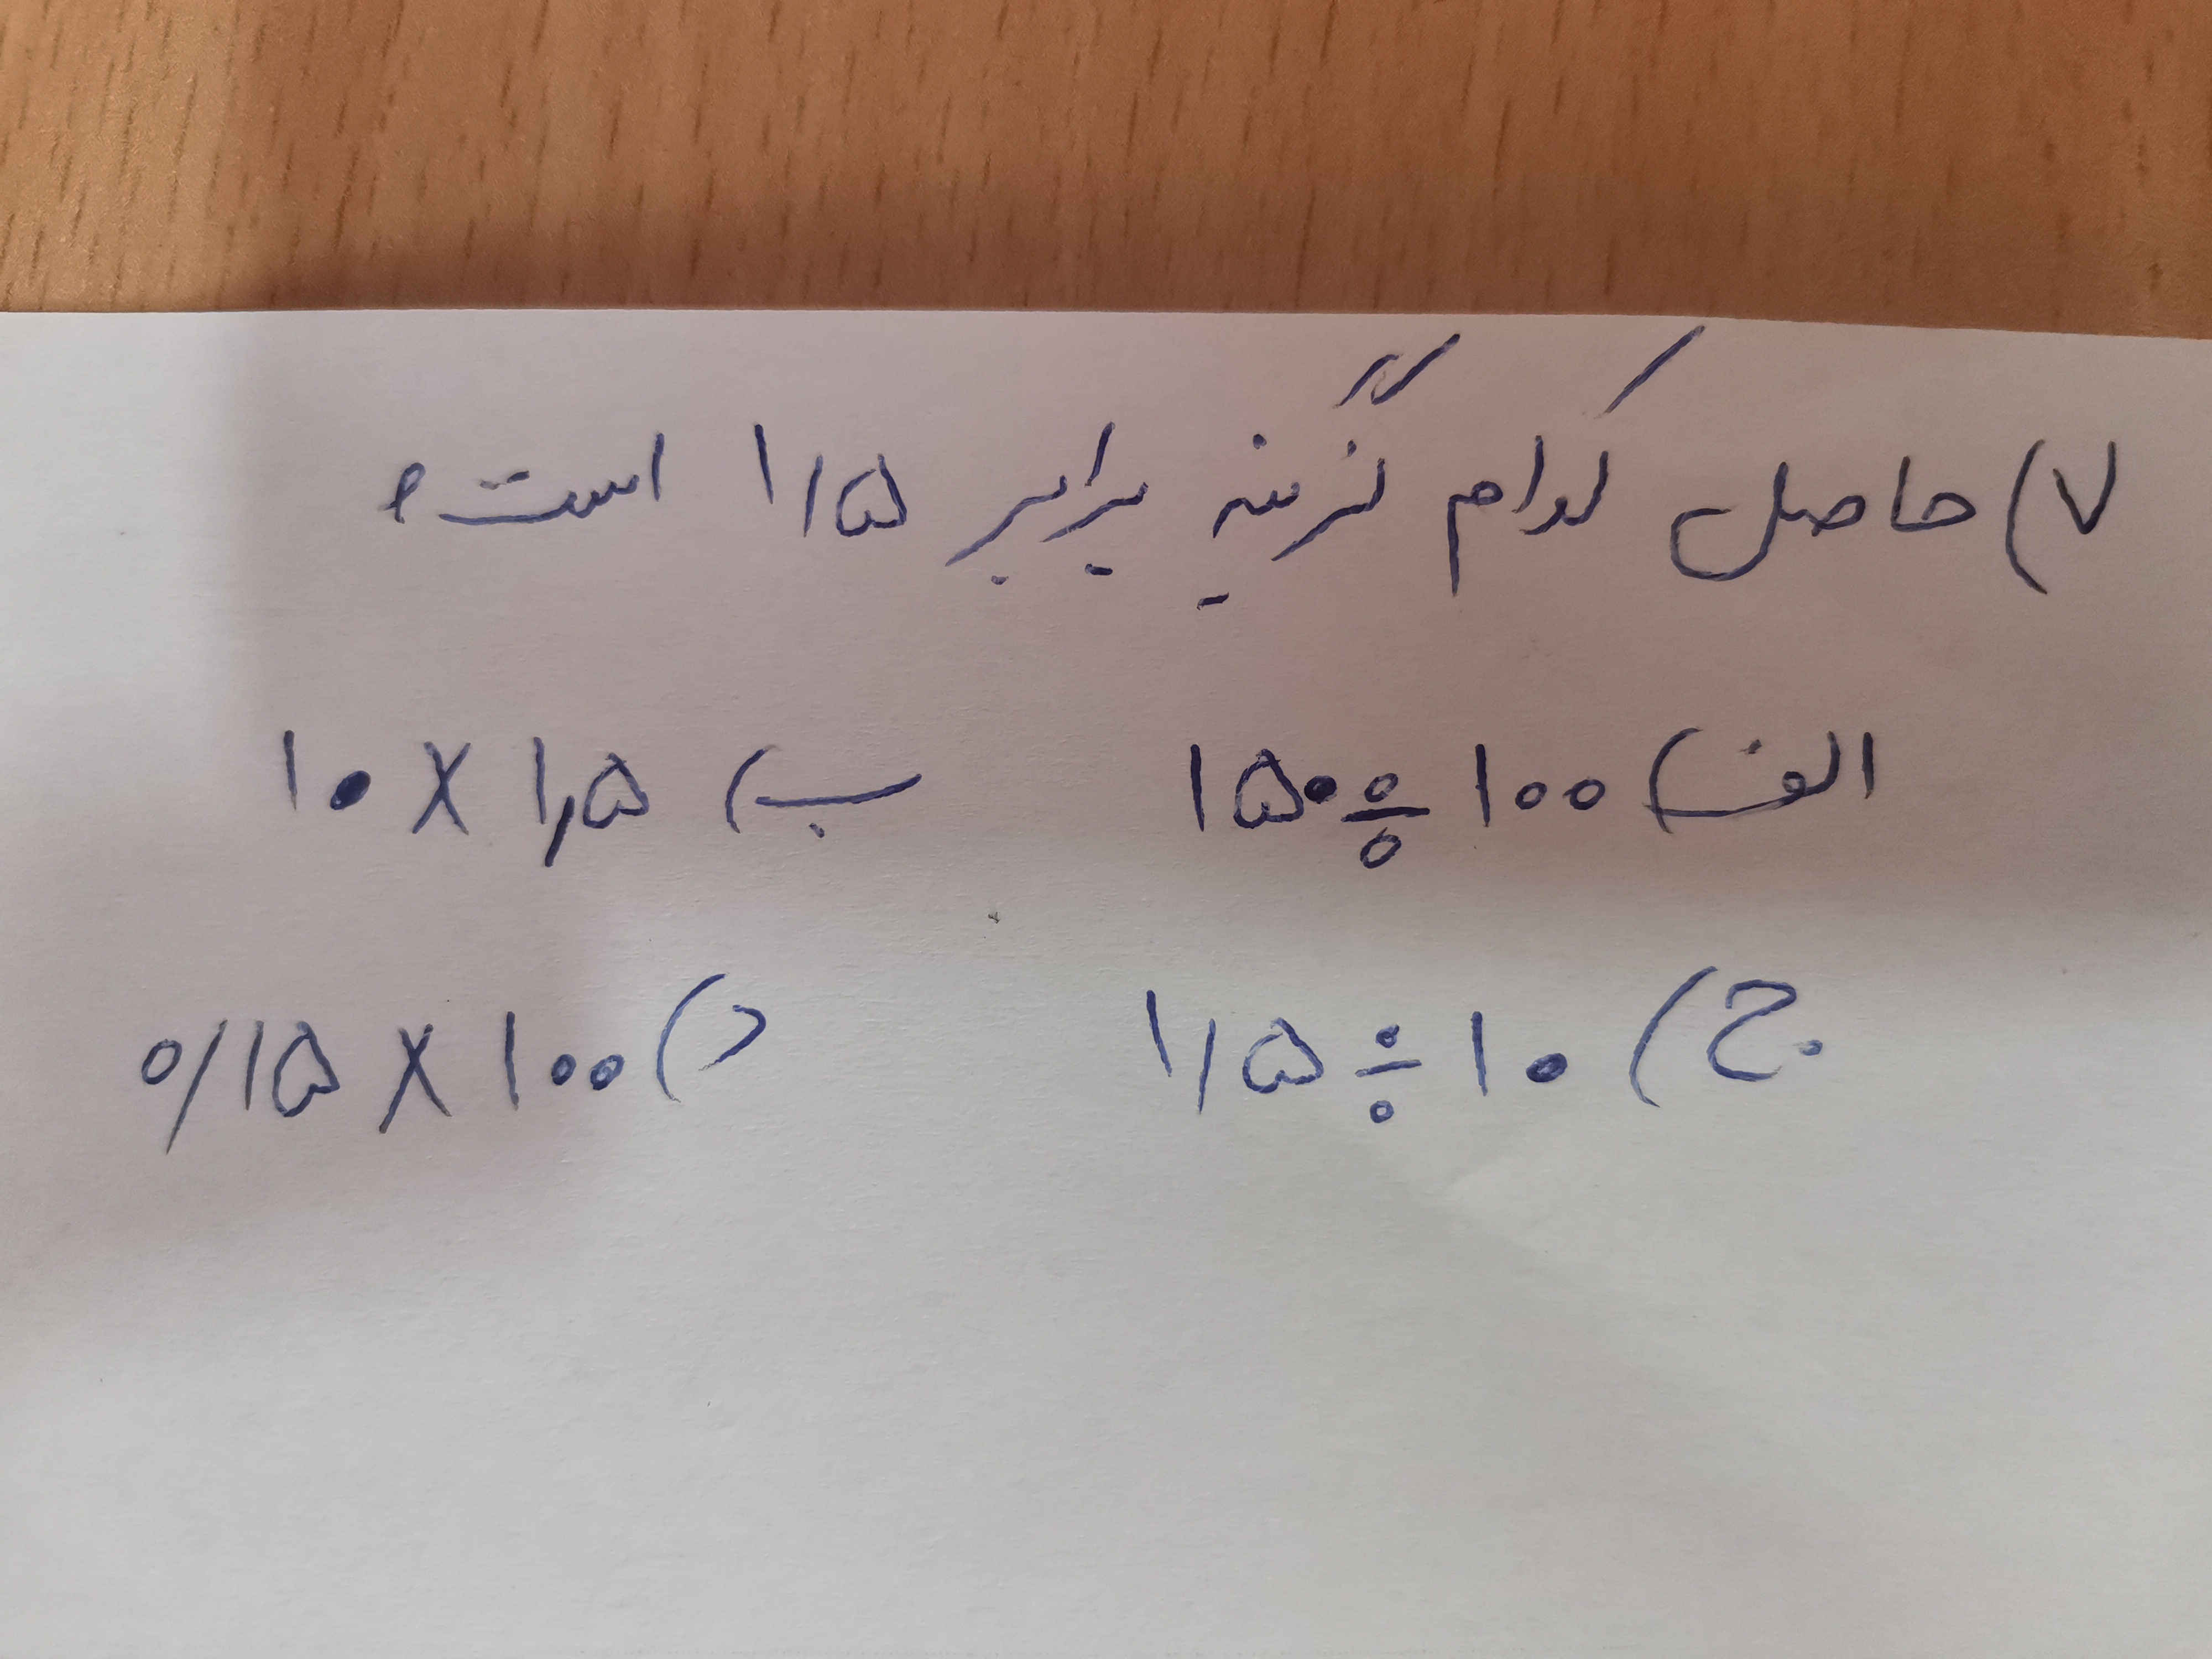 ۷) حاصل کدام گزینه برابر ۱/۵ است؟
الف) ۱۵۰ ÷ ۱۰۰ ب) ۱۰ × ۱/۵
ج) ۱/۵ ÷ ۱۰ د) ۰/۱۵ × ۱۰۰